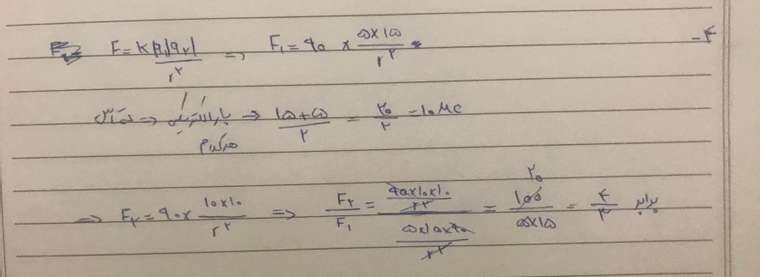 ۴- F = K|q₁||q₂| / r² => F₁ = ۹۰ × ۵×۱۵ / r²
تماس => بار الکتریکی هرکدام => ۱۵+۵ / ۲ = ۲۰ / ۲ = ۱۰ μC
=> F₂ = ۹۰ × ۱۰×۱۰ / r² => F₂ / F₁ = (۹۰×۱۰×۱۰ / r²) / (۵×۱۵×۹۰ / r²) = ۱۰۰ / ۵×۱۵ = ۴ / ۳ برابر
۲۰